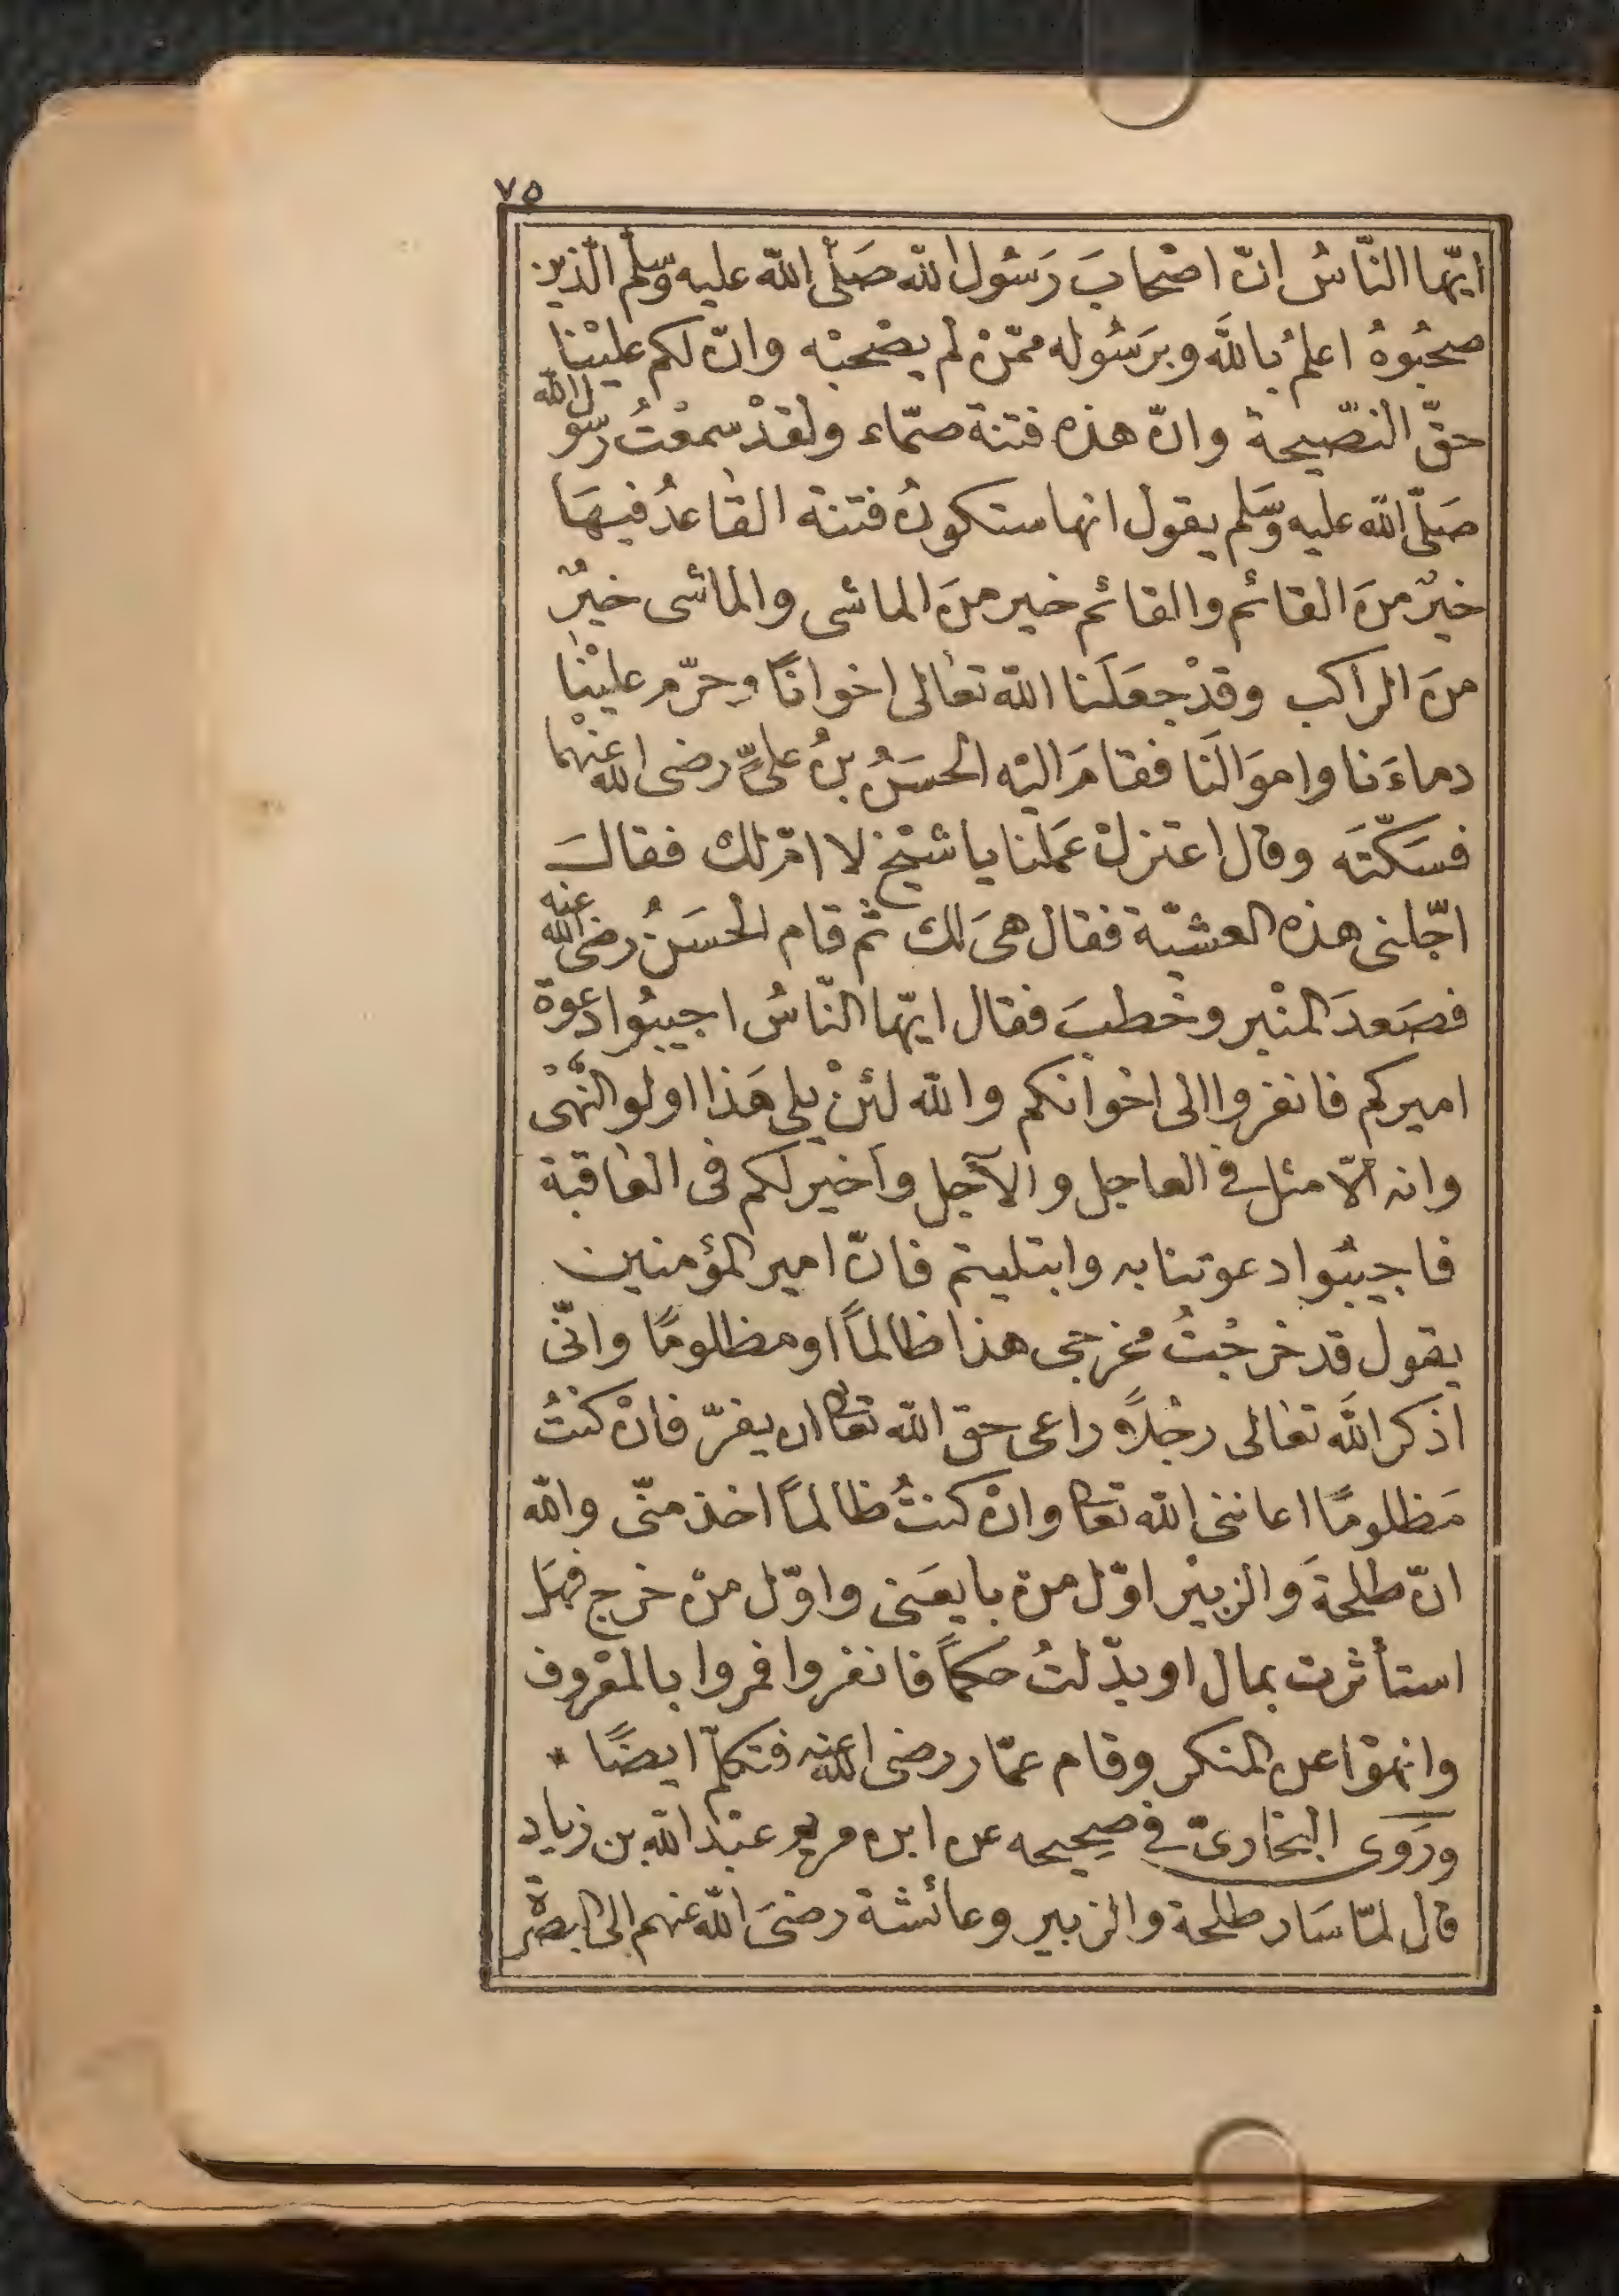 ٧٥
ايّها النّاسُ انّ اصْحابَ رَسُول اللّه صَلّى اللّه عليه وسّلم الّذين
صحبُوهُ اعلمُ باللّه وبرَسُوله ممّنْ لم يصْحبْه وانّ لكم عليْنا
حقّ النصّيحة وانّ هذه فتنة صمّاء ولقدْ سمعْتُ رسُول اللّه
صَلّى اللّه عليه وسّلم يقول انها ستكونُ فتنة القاعدُ فيهَا
خيرٌ منَ القائم والقائم خير منَ الماشى والماشى خيرٌ
منَ الراكب وقدْ جعَلَنا اللّه تعالى اخوانًا وحرّم عليْنا
دماءَنا واموَالنَا فقامَ اليْه الحسَنُ بنُ علىّ رضى اللّه عنهْما
فسَكّتَه وقال اعتزلْ عمَلنا يا شيْخ لا امّ لك فقالَ
اجّلنى هذه العشيّة فقال هىَ لك ثمّ قام الحسَنُ رضى اللّه عنه
فصَعدَ المنْبر وخطبَ فقال ايّها النّاسُ اجيبُوا دعوة
اميركم فانفروا الى اخوانكم واللّه لئنْ يلى هَذا اولو النّهْى
وانه الاّ مثل فى العاجل والآجل وأخير لكم فى العاقبة
فاجيبُوا دعوتنا به وابتليتم فانّ امير المؤمنين
يقول قد خرجْتُ مخرجى هذا ظالماً او مظلومًا وانّى
اذكر اللّه تعالى رجْلاً راعى حق اللّه تعالى ان يفرّ فانْ كنْتُ
مَظلومًا اعاننى اللّه تعالى وانْ كنتُ ظالماً اخذ منّى واللّه
انّ طلحةَ والزبيْر اوّل منْ بايعَنى واوّل منْ خرج فهَل
استأثرت بمال او بدّلتُ حكماً فانفروا فمروا بالمعْروف
وانهوْا عن المنكر وقام عمّار رضى اللّه عنه فتكلمّ ايضًا *
ورَوَى البخارىّ فى صحِيحه عن ابن مريم عبْد اللّه بن زياد
قال لمّا سَار طلحة والزبير وعائشة رضىَ اللّه عنهم الى البصْرة